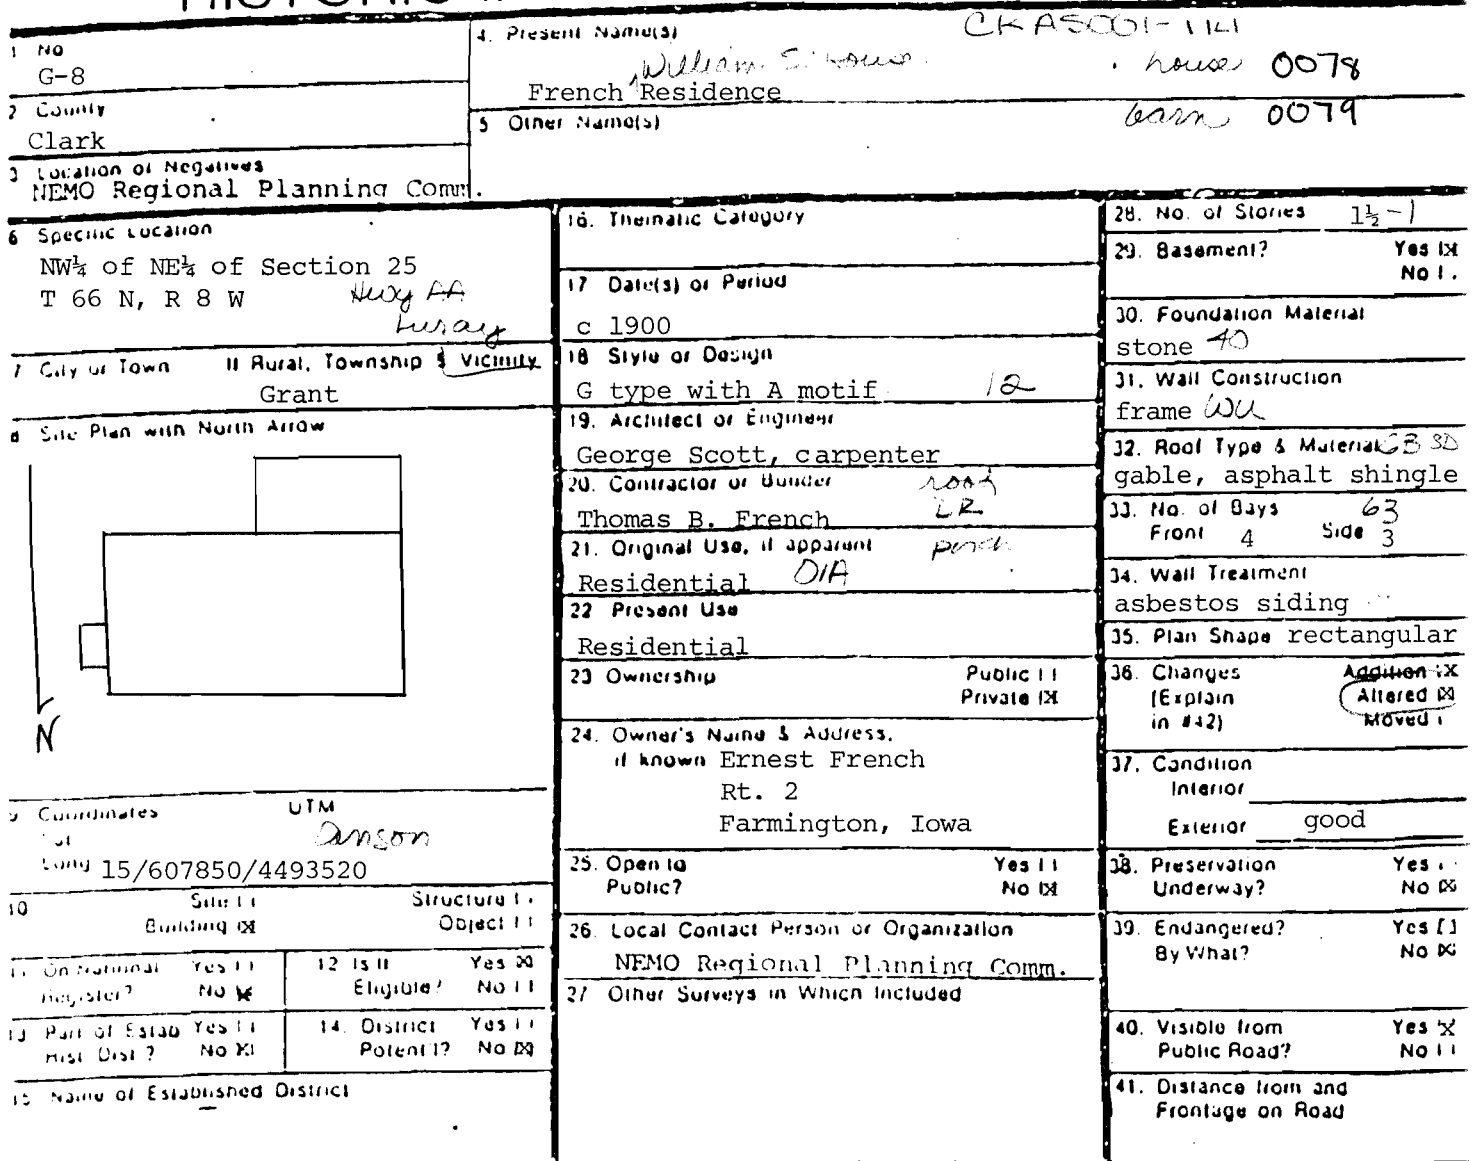 1 No
G-8
2 County
Clark
3 Location of Negatives
NEMO Regional Planning Comm.
4. Present Name(s)
CKAS001-114
William E. house
French Residence
house 0078
5 Other Name(s)
barn 0079
6 Specific Location
NW¼ of NE¼ of Section 25
T 66 N, R 8 W Hwy AA
Luray
7 City or Town If Rural, Township & Vicinity
Grant
8 Site Plan with North Arrow
N
9 Coordinates UTM
Lat Anson
Long 15/607850/4493520
10 Site [ ] Structure [ ]
Building [X] Object [ ]
11 On National Register? Yes [ ] No [X]
12 Is It Eligible? Yes [X] No [ ]
13 Part of Estab Hist. Dist.? Yes [ ] No [X]
14. District Potent'l? Yes [ ] No [X]
15 Name of Established District
16. Thematic Category
17 Date(s) or Period
c 1900
18 Style or Design
G type with A motif 12
19. Architect or Engineer
George Scott, carpenter
20. Contractor or Builder roof
Thomas B. French LR
21. Original Use, if apparent porch
Residential 01A
22 Present Use
Residential
23 Ownership Public [ ]
Private [X]
24. Owner's Name & Address,
if known Ernest French
Rt. 2
Farmington, Iowa
25. Open to Yes [ ]
Public? No [X]
26. Local Contact Person or Organization
NEMO Regional Planning Comm.
27 Other Surveys in Which Included
28. No. of Stories 1½-1
29. Basement? Yes [X]
No [ ]
30. Foundation Material
stone 40
31. Wall Construction
frame WU
32. Roof Type & Material GB SD
gable, asphalt shingle
33. No. of Bays 63
Front 4 Side 3
34. Wall Treatment
asbestos siding
35. Plan Shape rectangular
36. Changes Addition [X]
(Explain Altered [X]
in #42) Moved [ ]
37. Condition
Interior
Exterior good
38. Preservation Yes [ ]
Underway? No [X]
39. Endangered? Yes [ ]
By What? No [X]
40. Visible from Yes [X]
Public Road? No [ ]
41. Distance from and
Frontage on Road